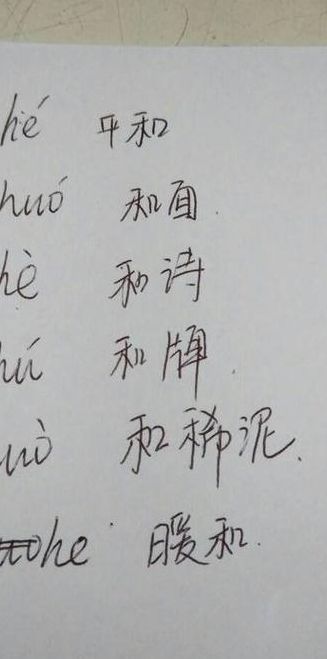 hé 平和
huó 和面.
hè 和诗
hú 和牌.
uò 和稀泥.
he 暖和.